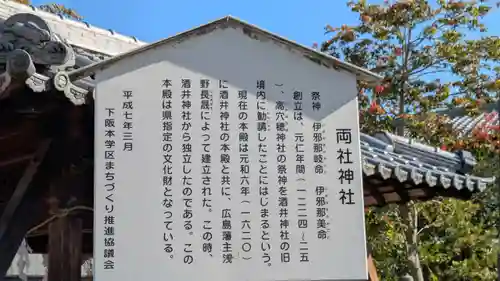 両社神社
祭神　伊邪那岐命　伊邪那美命
創立は、元仁年間（一二二四～二五
）、高穴穂神社の祭神を酒井神社の旧
境内に勧請したことにはじまるという。
現在の本殿は元和六年（一六二〇）
に酒井神社の本殿と共に、広島藩主浅
野長晟によって建立された。この時、
酒井神社から独立したのである。この
本殿は県指定の文化財となっている。
平成七年三月
下阪本学区まちづくり推進協議会